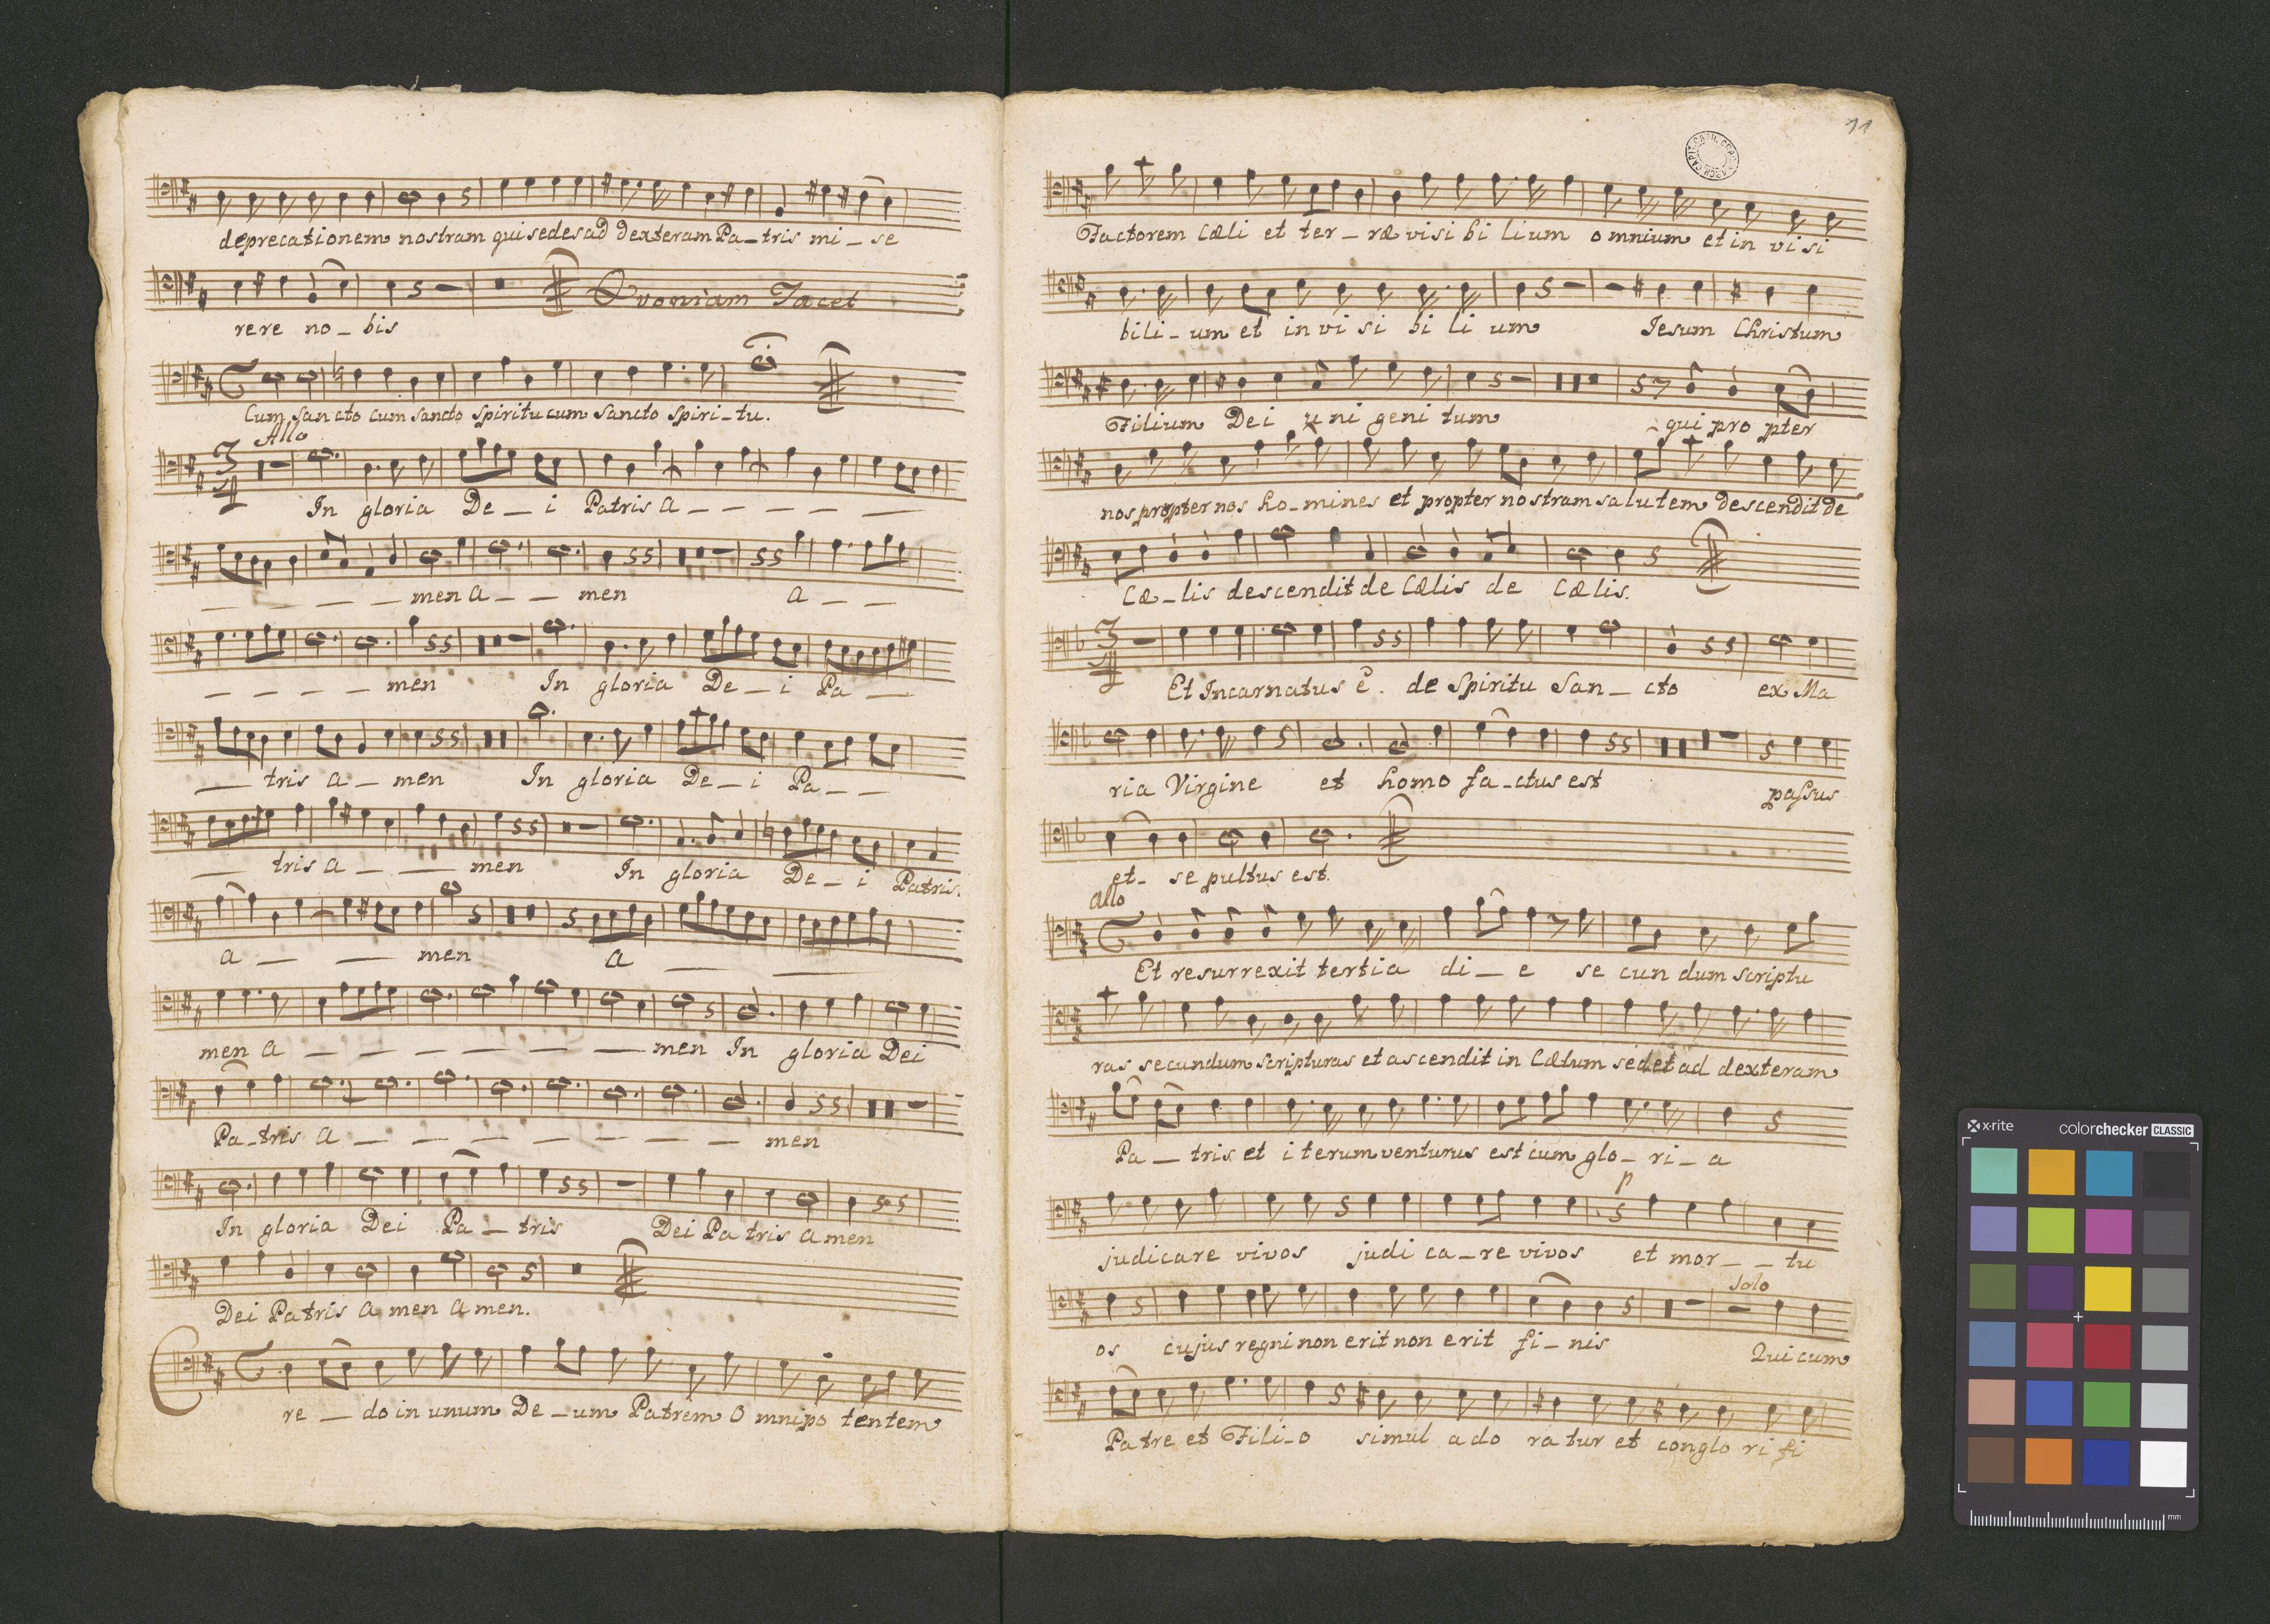 deprecationem nostram qui sedes ad dexteram Pa_tris mi_se
rere no_bis
Quoniam Tacet
Cum sancto cum sancto spiritu cum sancto spiri_tu.
Allo
In gloria De_i Patris a
men a men a
men In gloria De_i Pa
tris a_men In gloria De_i Pa
tris a men In gloria De_i Patris.
a men a
men a men In gloria Dei
Pa_tris a men
In gloria Dei Pa_tris Dei Patris amen
Dei Patris a men amen.
Cre_do in unum De_um Patrem omnipo tentem
11
Factorem Cæli et ter_ræ visi bi lium omnium et in visi
bili_um et in vi si bi li um Iesum Christum
Filium Dei uni geni tum qui pro pter
nos propter nos ho_mines et propter nostram salutem descendit de
Cæ_lis descendit de Cælis de Cælis.
Et Incarnatus ẽ. de Spiritu San_cto ex Ma
ria Virgine et homo fa_ctus est passus
et_ se pultus est.
Allo
Et resurrexit tertia di_e se cun dum scriptu
ras secundum scripturas et ascendit in Cælum sedet ad dexteram
Pa_tris et i terum venturus est cum glo_ri_a
p
judicare vivos judi ca_re vivos et mor__tu
Solo
os cujus regni non erit non erit fi_nis Qui cum
Patre et Fili_o simul ado ratur et conglo ri fi
x-rite
colorchecker CLASSIC
mm